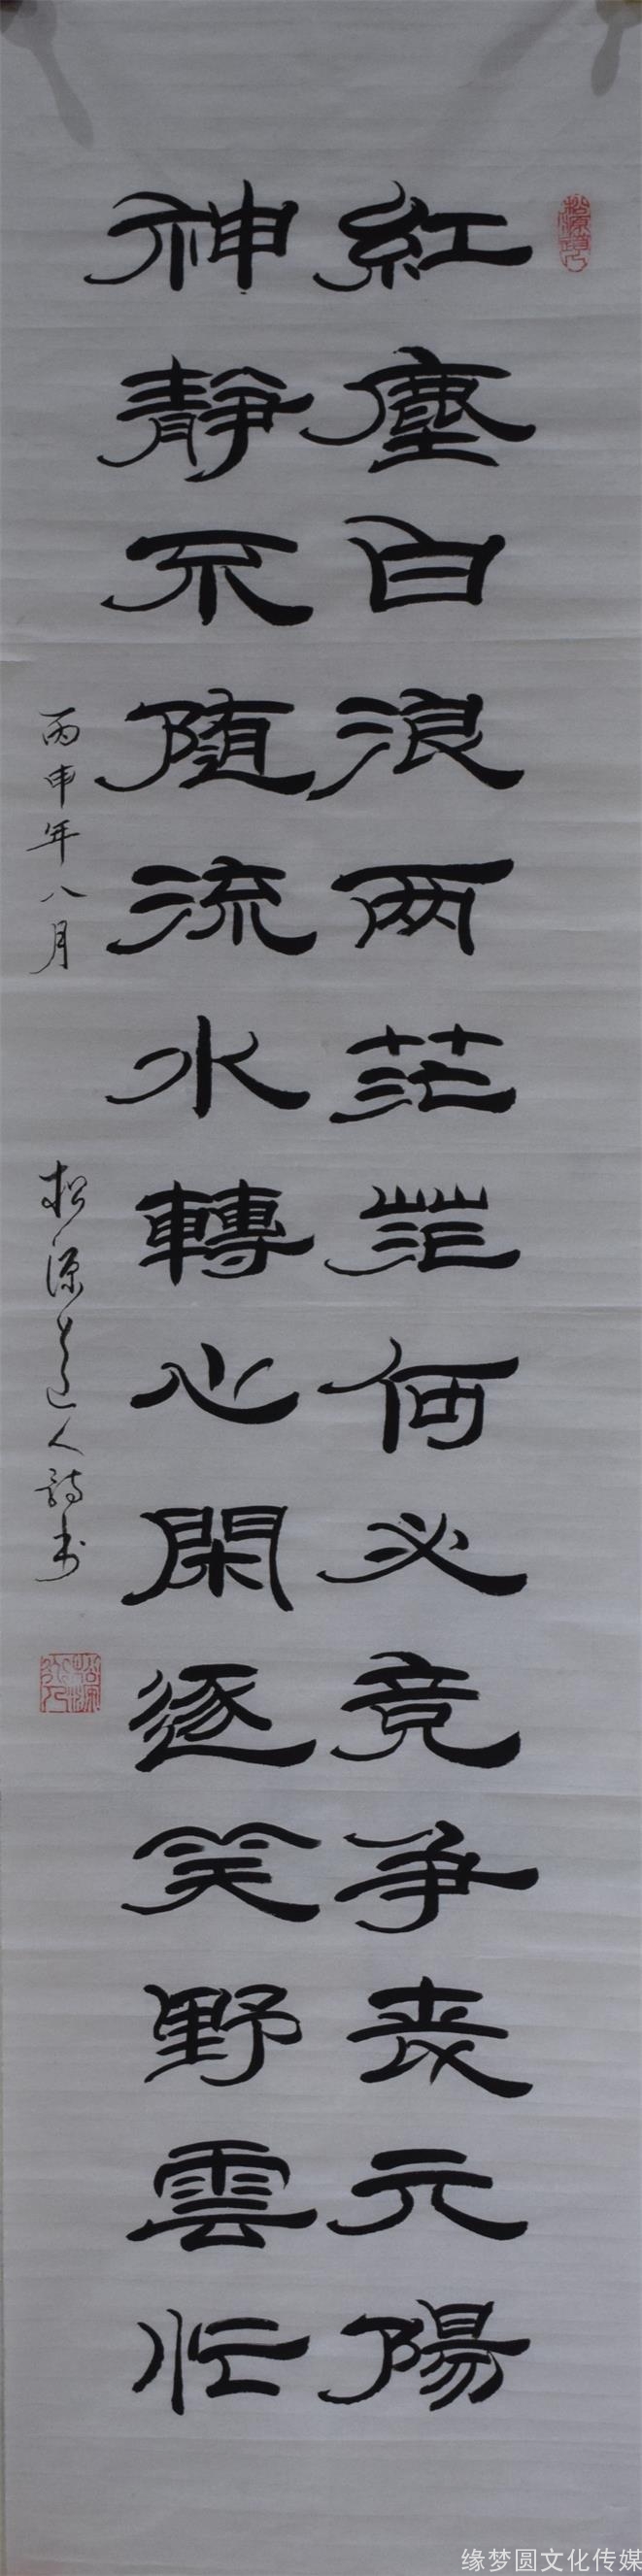 紅塵白浪两茫茫何必竞争丧元陽
神靜不随流水轉心閑逐笑野雲忙
丙申年八月 松源道人詩书
缘梦圆文化传媒